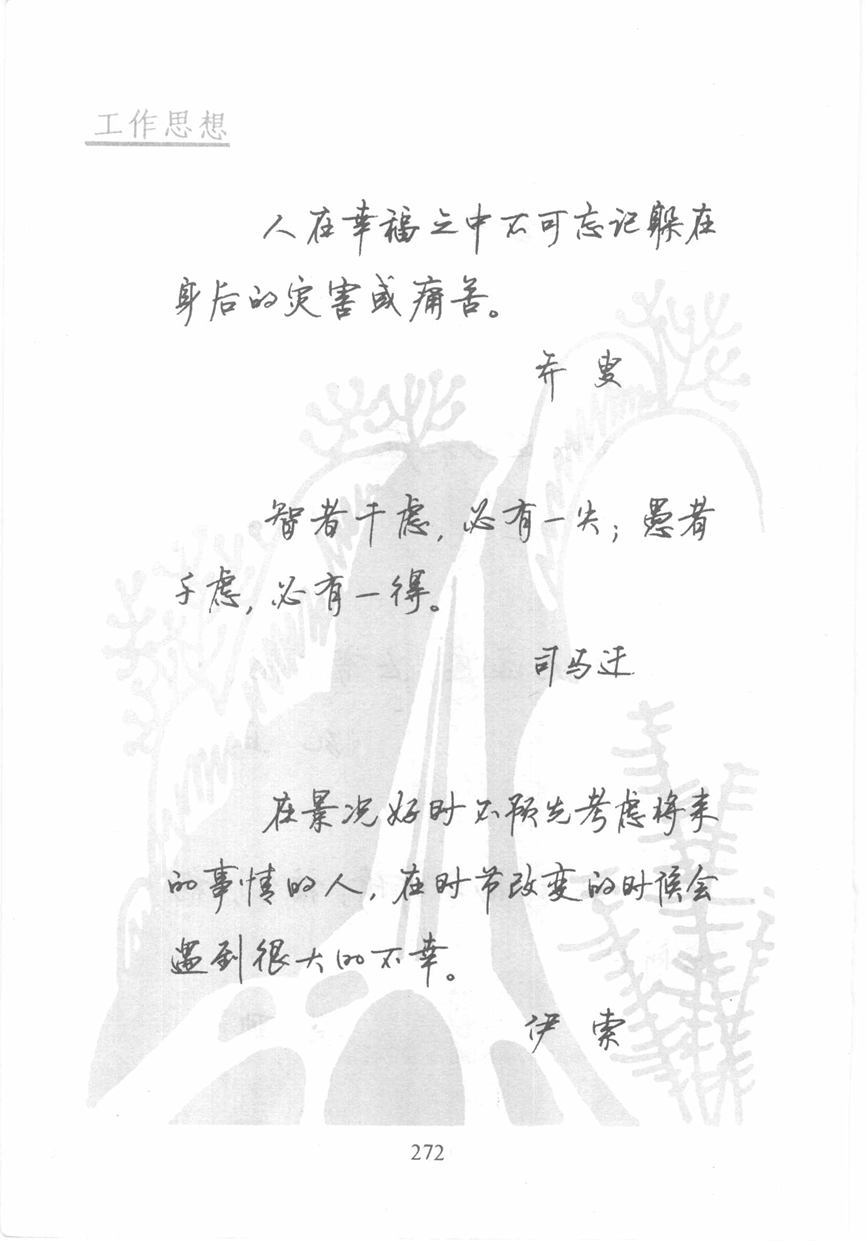 工作思想
人在幸福之中不可忘记躲在
身后的灾害或痛苦。
乔叟
智者千虑,必有一失;愚者
千虑,必有一得。
司马迁
在景况好时不预先考虑将来
的事情的人,在时节改变的时候会
遇到很大的不幸。
伊索
272